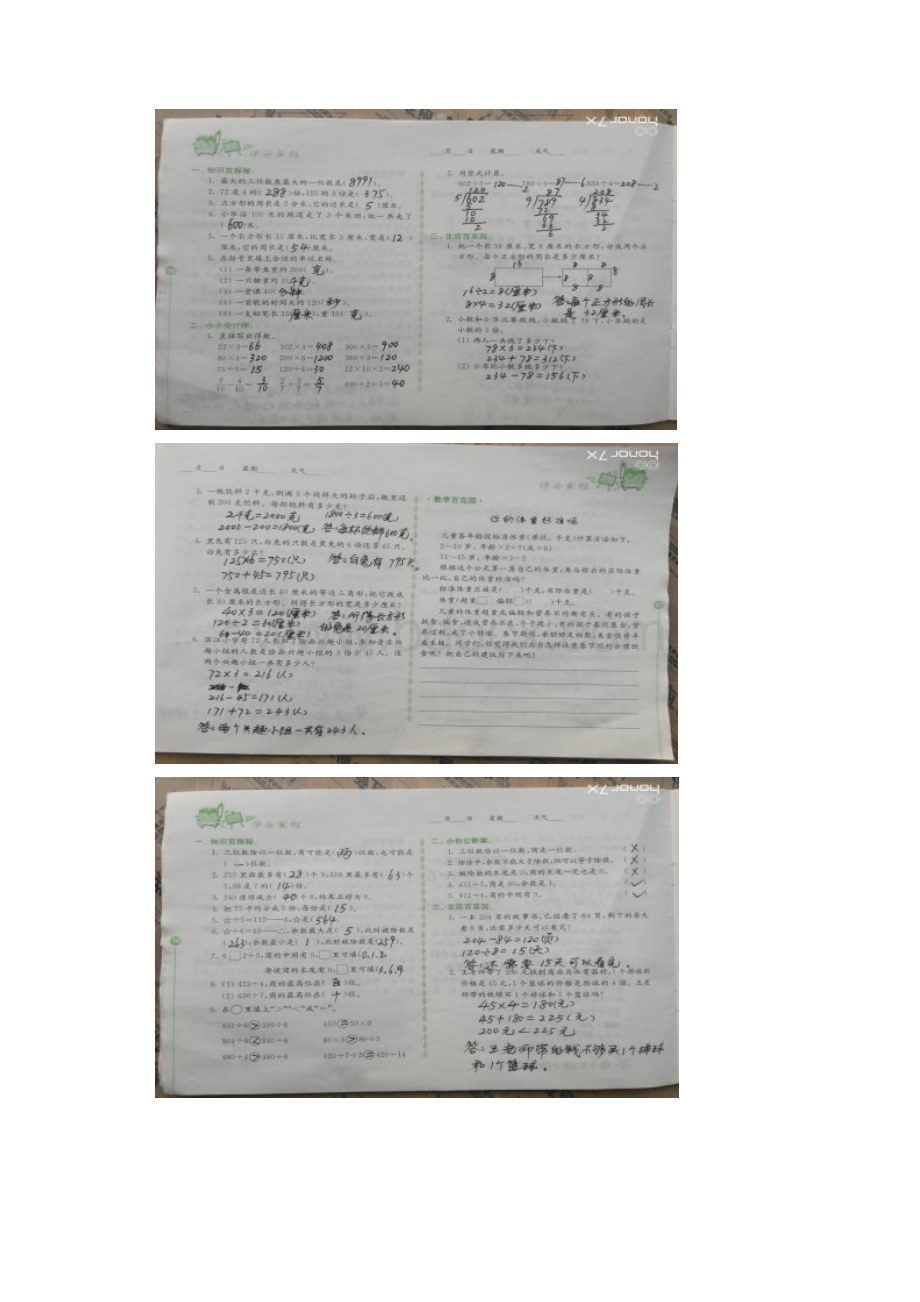 honor 7X
快乐寒假
月 日 星期 天气
一、知识百探秘。
1. 最大的三位数乘最大的一位数是(8991)。
2. 72是4的(288)倍,125的3倍是(375)。
3. 正方形的周长是2分米,它的边长是(5)厘米。
4. 小华沿100米的跑道走了3个来回,他一共走了
(600)米。
5. 一个长方形长15厘米,比宽长3厘米,宽是(12)
厘米,它的周长是(54)厘米。
6. 在括号里填上合适的单位名称。
(1) 一条带鱼重约200(克)。
(2) 一只鹅重约3(千克)。
(3) 一堂课40(分钟)。
(4) 一首歌的时间大约120(秒)。
(5) 一支铅笔长15(厘米),重15(克)。
二、小小会计师。
1. 直接写出得数。
22×3=66 102×4=408 300×3=900
80×4=320 200×6=1200 360÷3=120
75÷5=15 120÷4=30 12×10×2=240
400÷2÷5=40
2. 用竖式计算。
602÷5=120……2 789÷9=87……6 834÷4=208……2
三、生活百草园。
1. 把一个长16厘米,宽8厘米的长方形,分成两个正
方形。每个正方形的周长是多少厘米?
16÷2=8(厘米)
8×4=32(厘米) 答:每个正方形的周长
是32厘米。
2. 小敏和小华比赛跳绳,小敏跳了78下,小华跳的是
小敏的3倍。
(1) 两人一共跳了多少下?
78×3=234(下)
234+78=312(下)
(2) 小华比小敏多跳多少下?
234-78=156(下)
honor 7X
月 日 星期 天气
快乐寒假
3. 一瓶饮料2千克,倒满3个同样大的杯子后,瓶里还
剩200克饮料。每杯饮料有多少克?
2千克=2000克 1800÷3=600(克)
2000-200=1800(克) 答:每杯饮料600克。
4. 黑兔有125只,白兔的只数是黑兔的6倍还多45只。
白兔有多少只?
125×6=750(只) 答:白兔有795只。
750+45=795(只)
5. 一个金属框是边长40厘米的等边三角形,把它改成
长40厘米的长方形。所得长方形的宽是多少厘米?
40×3=120(厘米) 答:所得长方形
120÷2=60(厘米) 的宽是20厘米。
60-40=20(厘米)
6. 滨江小学有72人参加了绘画兴趣小组,参加音乐兴
趣小组的人数是绘画兴趣小组的3倍少45人。这
两个兴趣小组一共有多少人?
72×3=216(人)
216-45=171(人)
171+72=243(人)
答:两个兴趣小组一共有243人。
·数学百花园·
你的体重标准吗
儿童各年龄段标准体重(单位:千克)计算方法如下:
2~10岁:年龄×2+7(或+8)
11~15岁:年龄×3-2
根据这个公式算一算自己的体重,再与称出的实际体重
比一比,自己的体重标准吗?
标准体重应该是( )千克,实际体重是( )千克。
体重(超重□ 偏轻□)( )千克。
儿童的体重超重或偏轻和营养不均衡有关。有的孩子
honor 7X
快乐寒假
月 日 星期 天气
一、知识百探秘。
1. 三位数除以一位数,商可能是(两)位数,也可能是
(一)位数。
2. 255里面最多有(28)个9,316里最多有(63)个
5,98是7的(14)倍。
3. 240连续减去(40)个6,结果正好为0。
4. 把75平均分成5份,每份是(15)。
5. ☆÷5=112……4,☆是(564)。
6. ☆÷6=43……△,余数最大是(5),此时被除数是
(263);余数最小是(1),此时被除数是(259)。
7. 4□2÷3,商的中间有0,□里可填(0,1,2)
要使商的末尾有0,□里可填(3,6,9
8. (1) 423÷4,商的最高位在(百)位。
(2) 636÷7,商的最高位在(十)位。
9. 在○里填上“>”“<”或“=”。
401÷6>399÷6 450=50×9
804÷6<840÷6 80×5>80÷5
480÷4>480÷6 420÷7÷2=420÷14
二、小小公断家。
1. 三位数除以一位数,商是一位数。 (×)
2. 除法中,余数不能大于除数,但可以等于除数。 (×)
3. 被除数的末尾是0,商的末尾一定也是0。 (×)
4. 451÷5,商是90,余数是1。 (✓)
5. 812÷4,商的中间有0。 (✓)
三、生活百草园。
1. 一本204页的故事书,已经看了84页,剩下的每天
看8页,还需多少天可以看完?
204-84=120(页)
120÷8=15(天)
答:还需要15天可以看完。
2. 王老师带了200元钱到商店买体育器材,1个排球的
价格是45元,1个篮球的价格是排球的4倍。王老
师带的钱够买1个排球和1个篮球吗?
45×4=180(元)
45+180=225(元)
200元<225元
答:王老师带的钱不够买1个排球
和1个篮球。